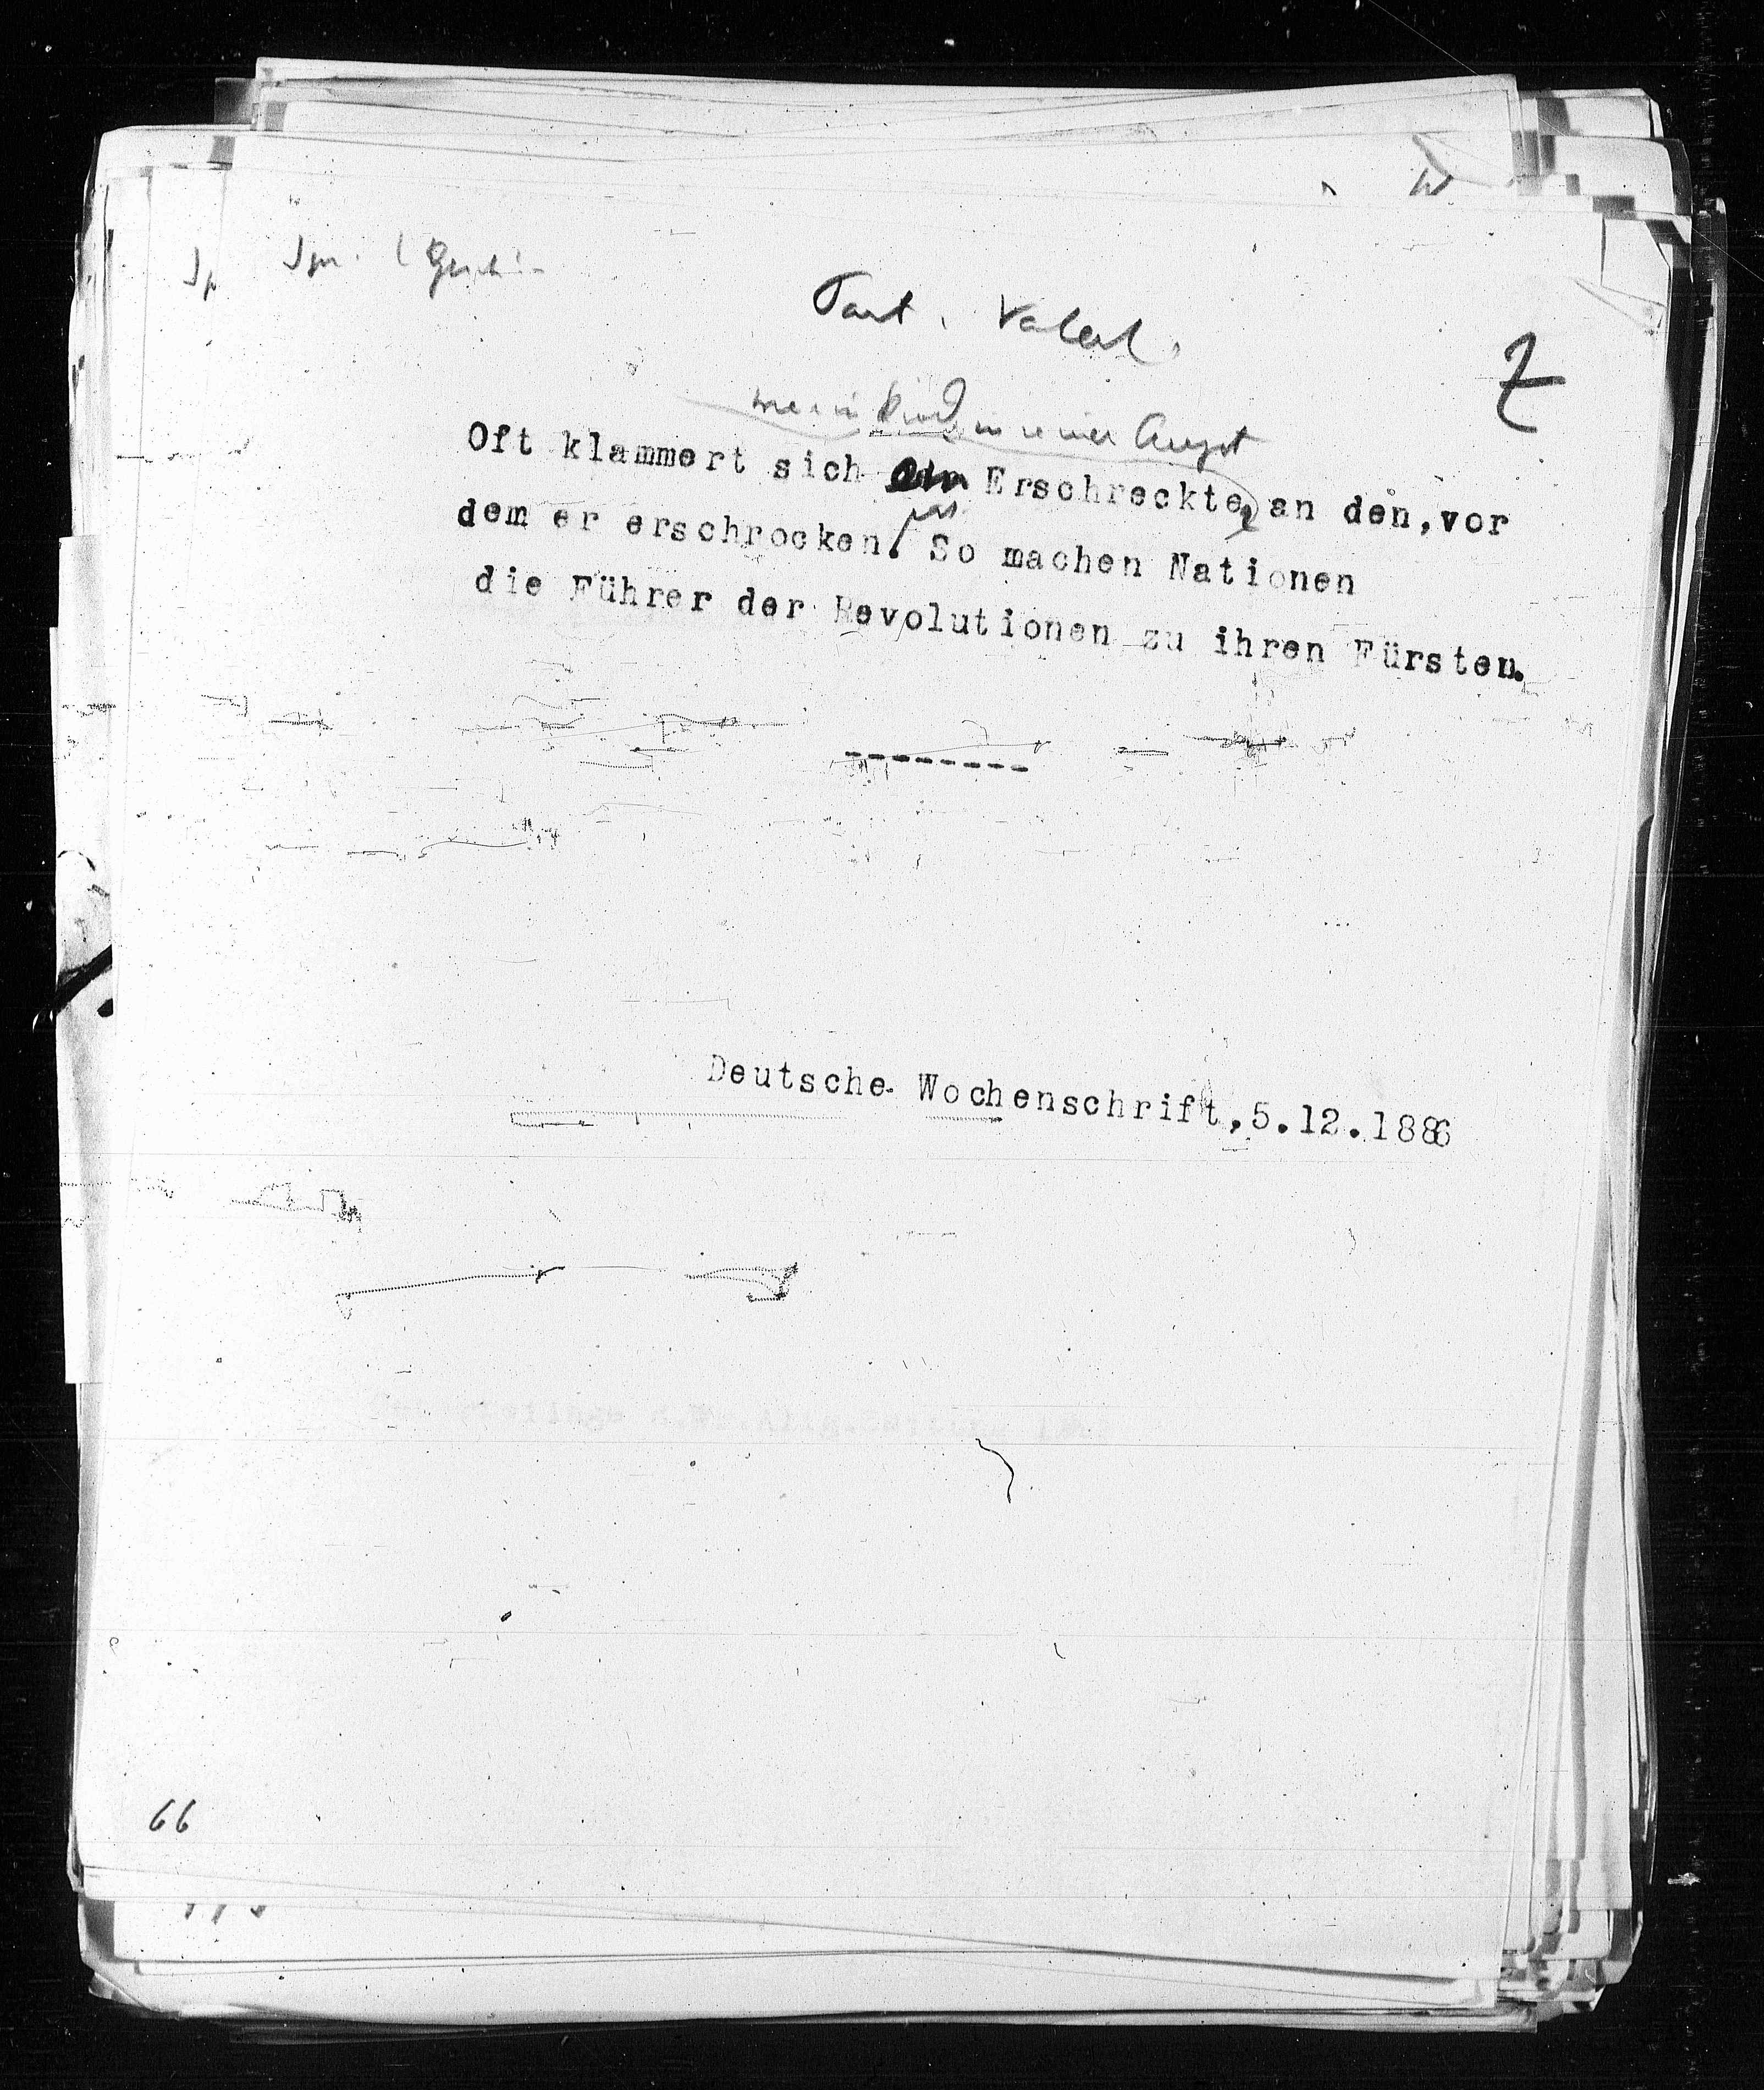 Vaterl.
Z
ein Kind in seiner Angst
Oft klammert sich ein Erschreckter an den, vor
dem er erschrocken. So machen Nationen
die Führer der Revolutionen zu ihren Fürsten.
--------
Deutsche Wochenschrift, 5.12.1886
66